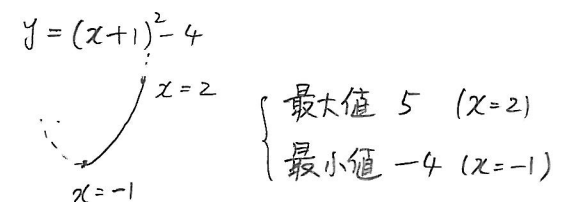 y = (x+1)² - 4
x = 2
最大値 5 (x=2)
最小値 -4 (x=-1)
x = -1